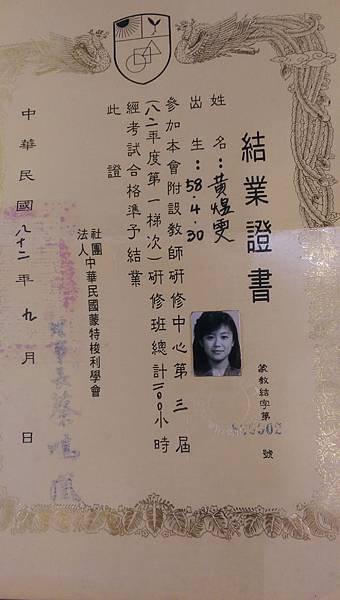 結業證書
蒙教結字第
號
姓名：黃煜雯
出生：58.4.30
參加本會附設教師研修中心第三屆
（八二年度第一梯次）研修班總計二〇〇小時
經考試合格準予結業
此證
社團法人中華民國蒙特梭利學會
理事長蔡
中華民國八十二年九月 日